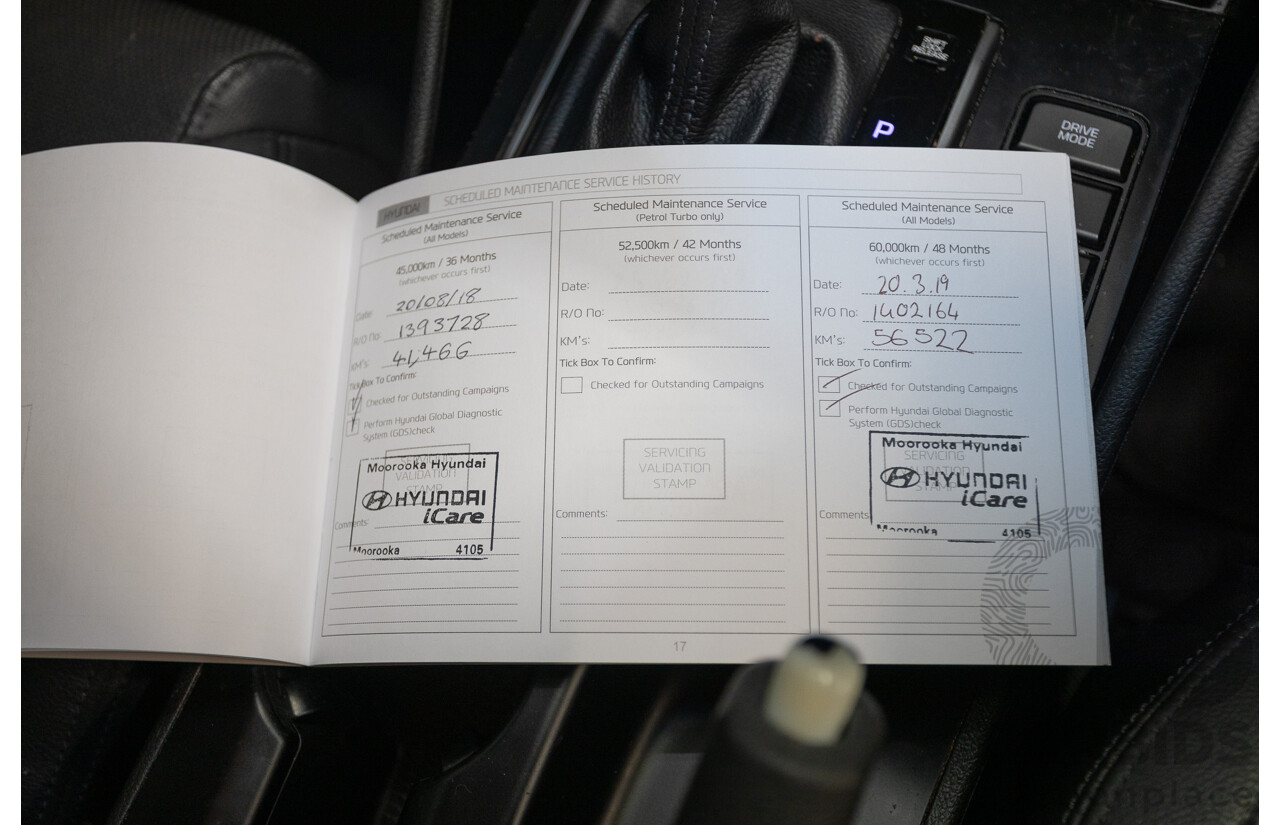 SHIFT
LOCK
RELEASE
P
DRIVE
MODE
HYUNDAI SCHEDULED MAINTENANCE SERVICE HISTORY
Scheduled Maintenance Service
(All Models)
45,000km / 36 Months
(whichever occurs first)
Date: 20/08/18
R/O No: 1393728
KM's: 41,466
Tick Box To Confirm:
Checked for Outstanding Campaigns
Perform Hyundai Global Diagnostic
System (GDS)check
SERVICING
VALIDATION
STAMP
Moorooka Hyundai
HYUNDAI
iCare
Moorooka 4105
Comments:
Scheduled Maintenance Service
(Petrol Turbo only)
52,500km / 42 Months
(whichever occurs first)
Date:
R/O No:
KM's:
Tick Box To Confirm:
Checked for Outstanding Campaigns
SERVICING
VALIDATION
STAMP
Comments:
Scheduled Maintenance Service
(All Models)
60,000km / 48 Months
(whichever occurs first)
Date: 20.3.19
R/O No: 1402164
KM's: 56522
Tick Box To Confirm:
Checked for Outstanding Campaigns
Perform Hyundai Global Diagnostic
System (GDS)check
SERVICING
VALIDATION
STAMP
Moorooka Hyundai
HYUNDAI
iCare
Moorooka 4105
Comments
17